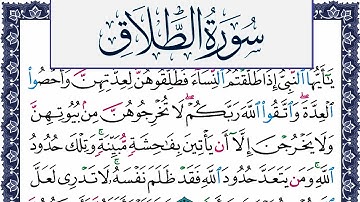 سُورَةُ الطَّلَاقِ
يَٰٓأَيُّهَا ٱلنَّبِىُّ إِذَا طَلَّقْتُمُ ٱلنِّسَآءَ فَطَلِّقُوهُنَّ لِعِدَّتِهِنَّ وَأَحْصُوا۟
ٱلْعِدَّةَ ۖ وَٱتَّقُوا۟ ٱللَّهَ رَبَّكُمْ ۖ لَا تُخْرِجُوهُنَّ مِنۢ بُيُوتِهِنَّ
وَلَا يَخْرُجْنَ إِلَّآ أَن يَأْتِينَ بِفَٰحِشَةٍ مُّبَيِّنَةٍ ۚ وَتِلْكَ حُدُودُ
ٱللَّهِ ۚ وَمَن يَتَعَدَّ حُدُودَ ٱللَّهِ فَقَدْ ظَلَمَ نَفْسَهُۥ ۚ لَا تَدْرِى لَعَلَّ